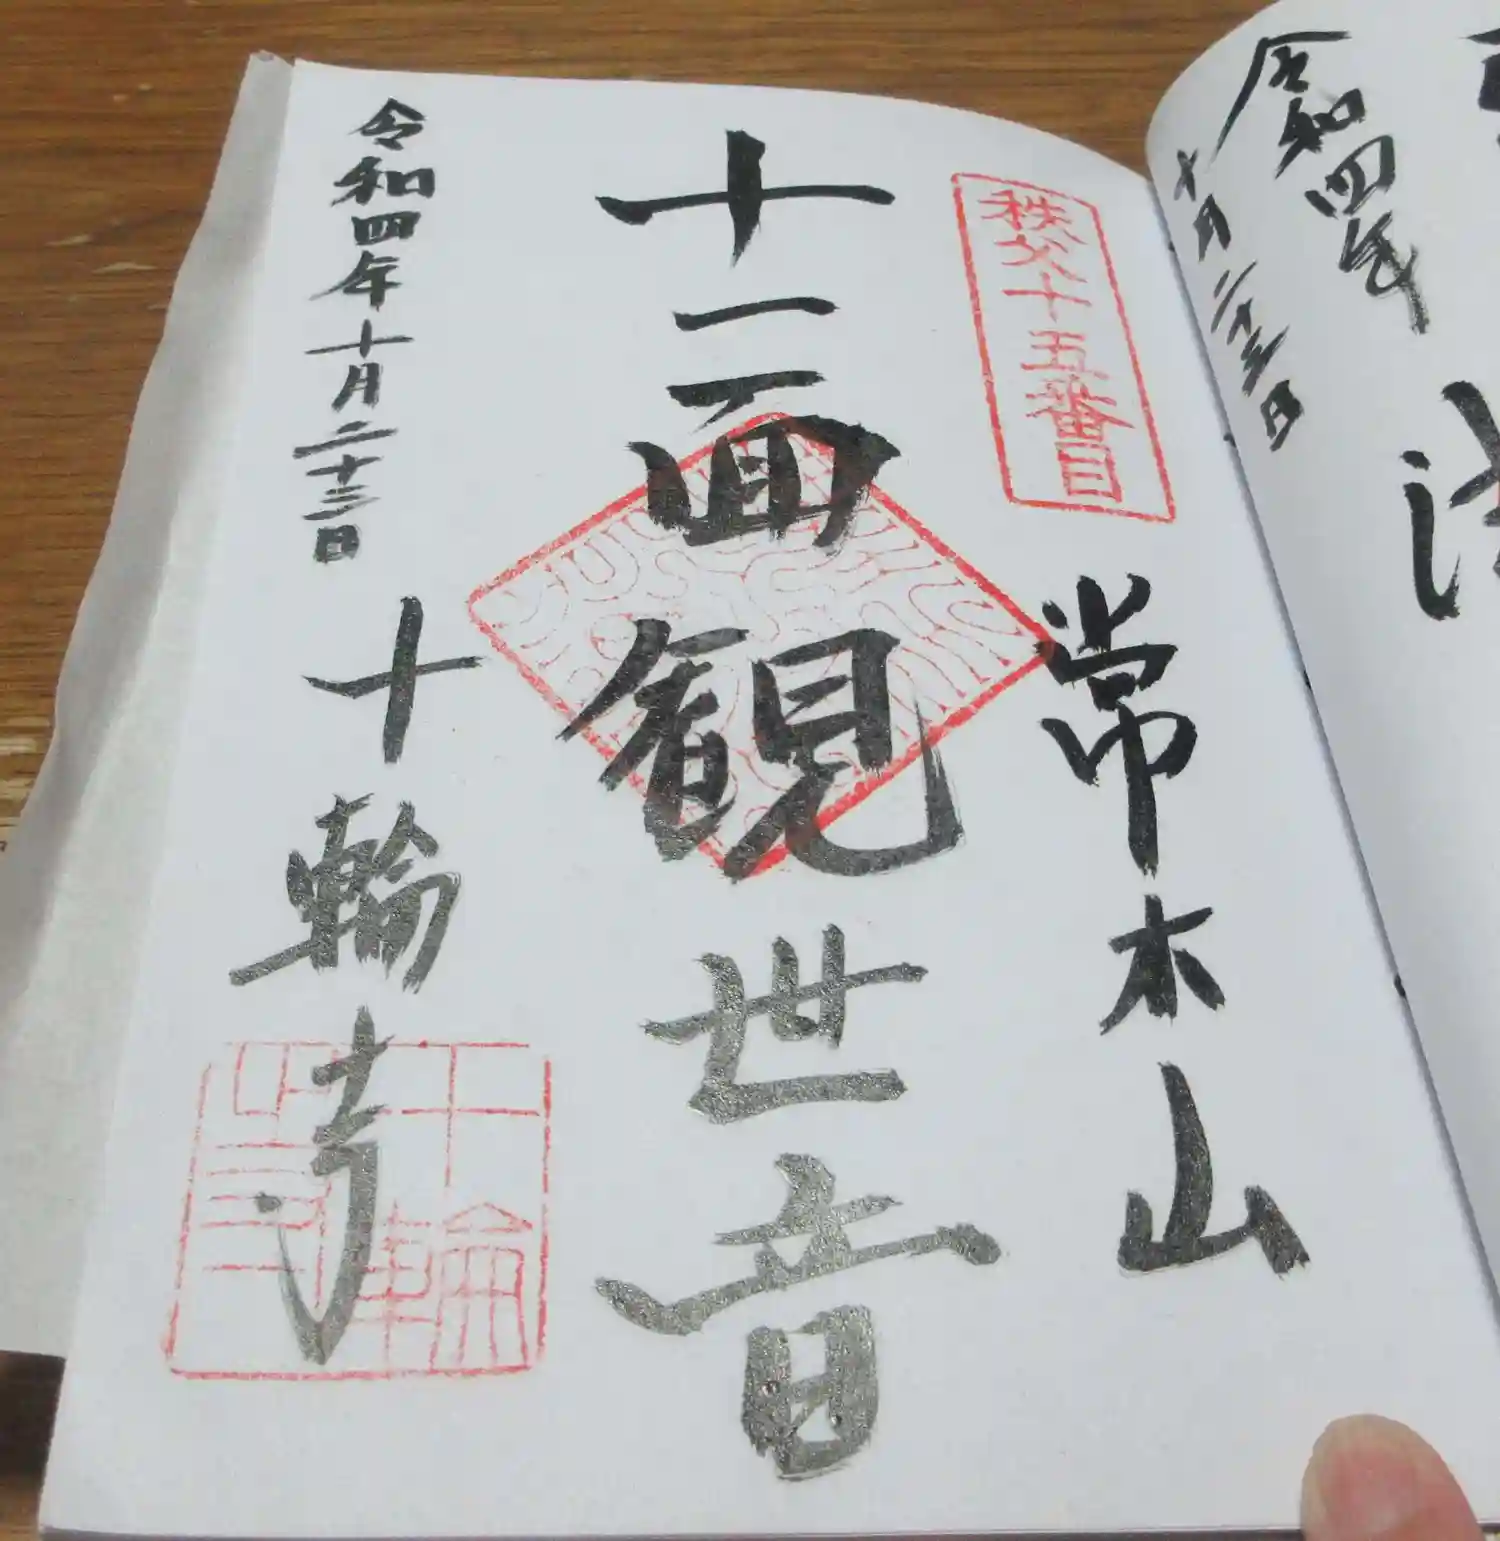 令和四年
十月二十三日
秩父十五番目
常木山
十一面観世音
令和四年十月二十三日
十輪寺
十輪寺